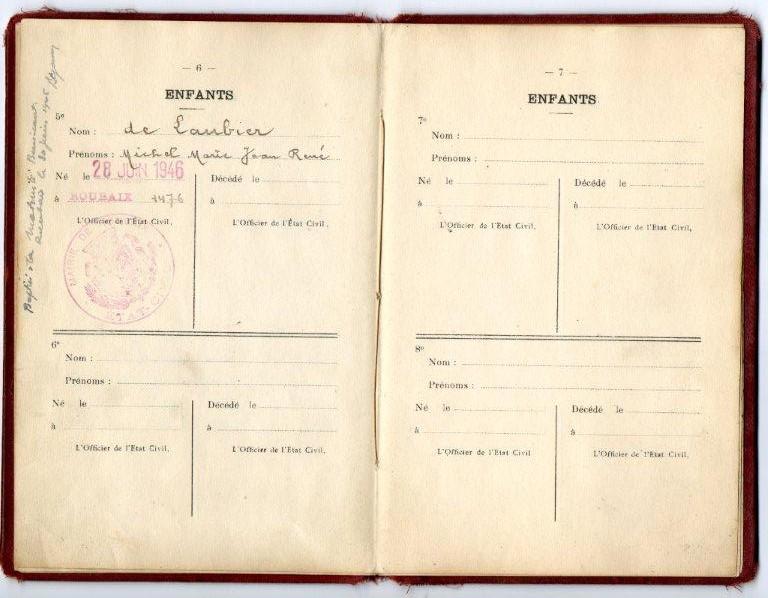 — 6 —
ENFANTS
5e
Nom : de Laubier
Prénoms : Michel Marie Jean René
Né le 28 JUIN 1946
Décédé le
à ROUBAIX 1476
à
L'Officier de l'État Civil,
L'Officier de l'État Civil,
MAIRIE DE
ÉTAT-CIVIL
6e
Nom :
Prénoms :
Né le
Décédé le
à
à
L'Officier de l'État Civil,
L'Officier de l'État Civil,
Baptisé à la
le 30 juin 1946
— 7 —
ENFANTS
7e
Nom :
Prénoms :
Né le
Décédé le
à
à
L'Officier de l'État Civil,
L'Officier de l'État Civil,
8e
Nom :
Prénoms :
Né le
Décédé le
à
à
L'Officier de l'État Civil
L'Officier de l'État Civil,